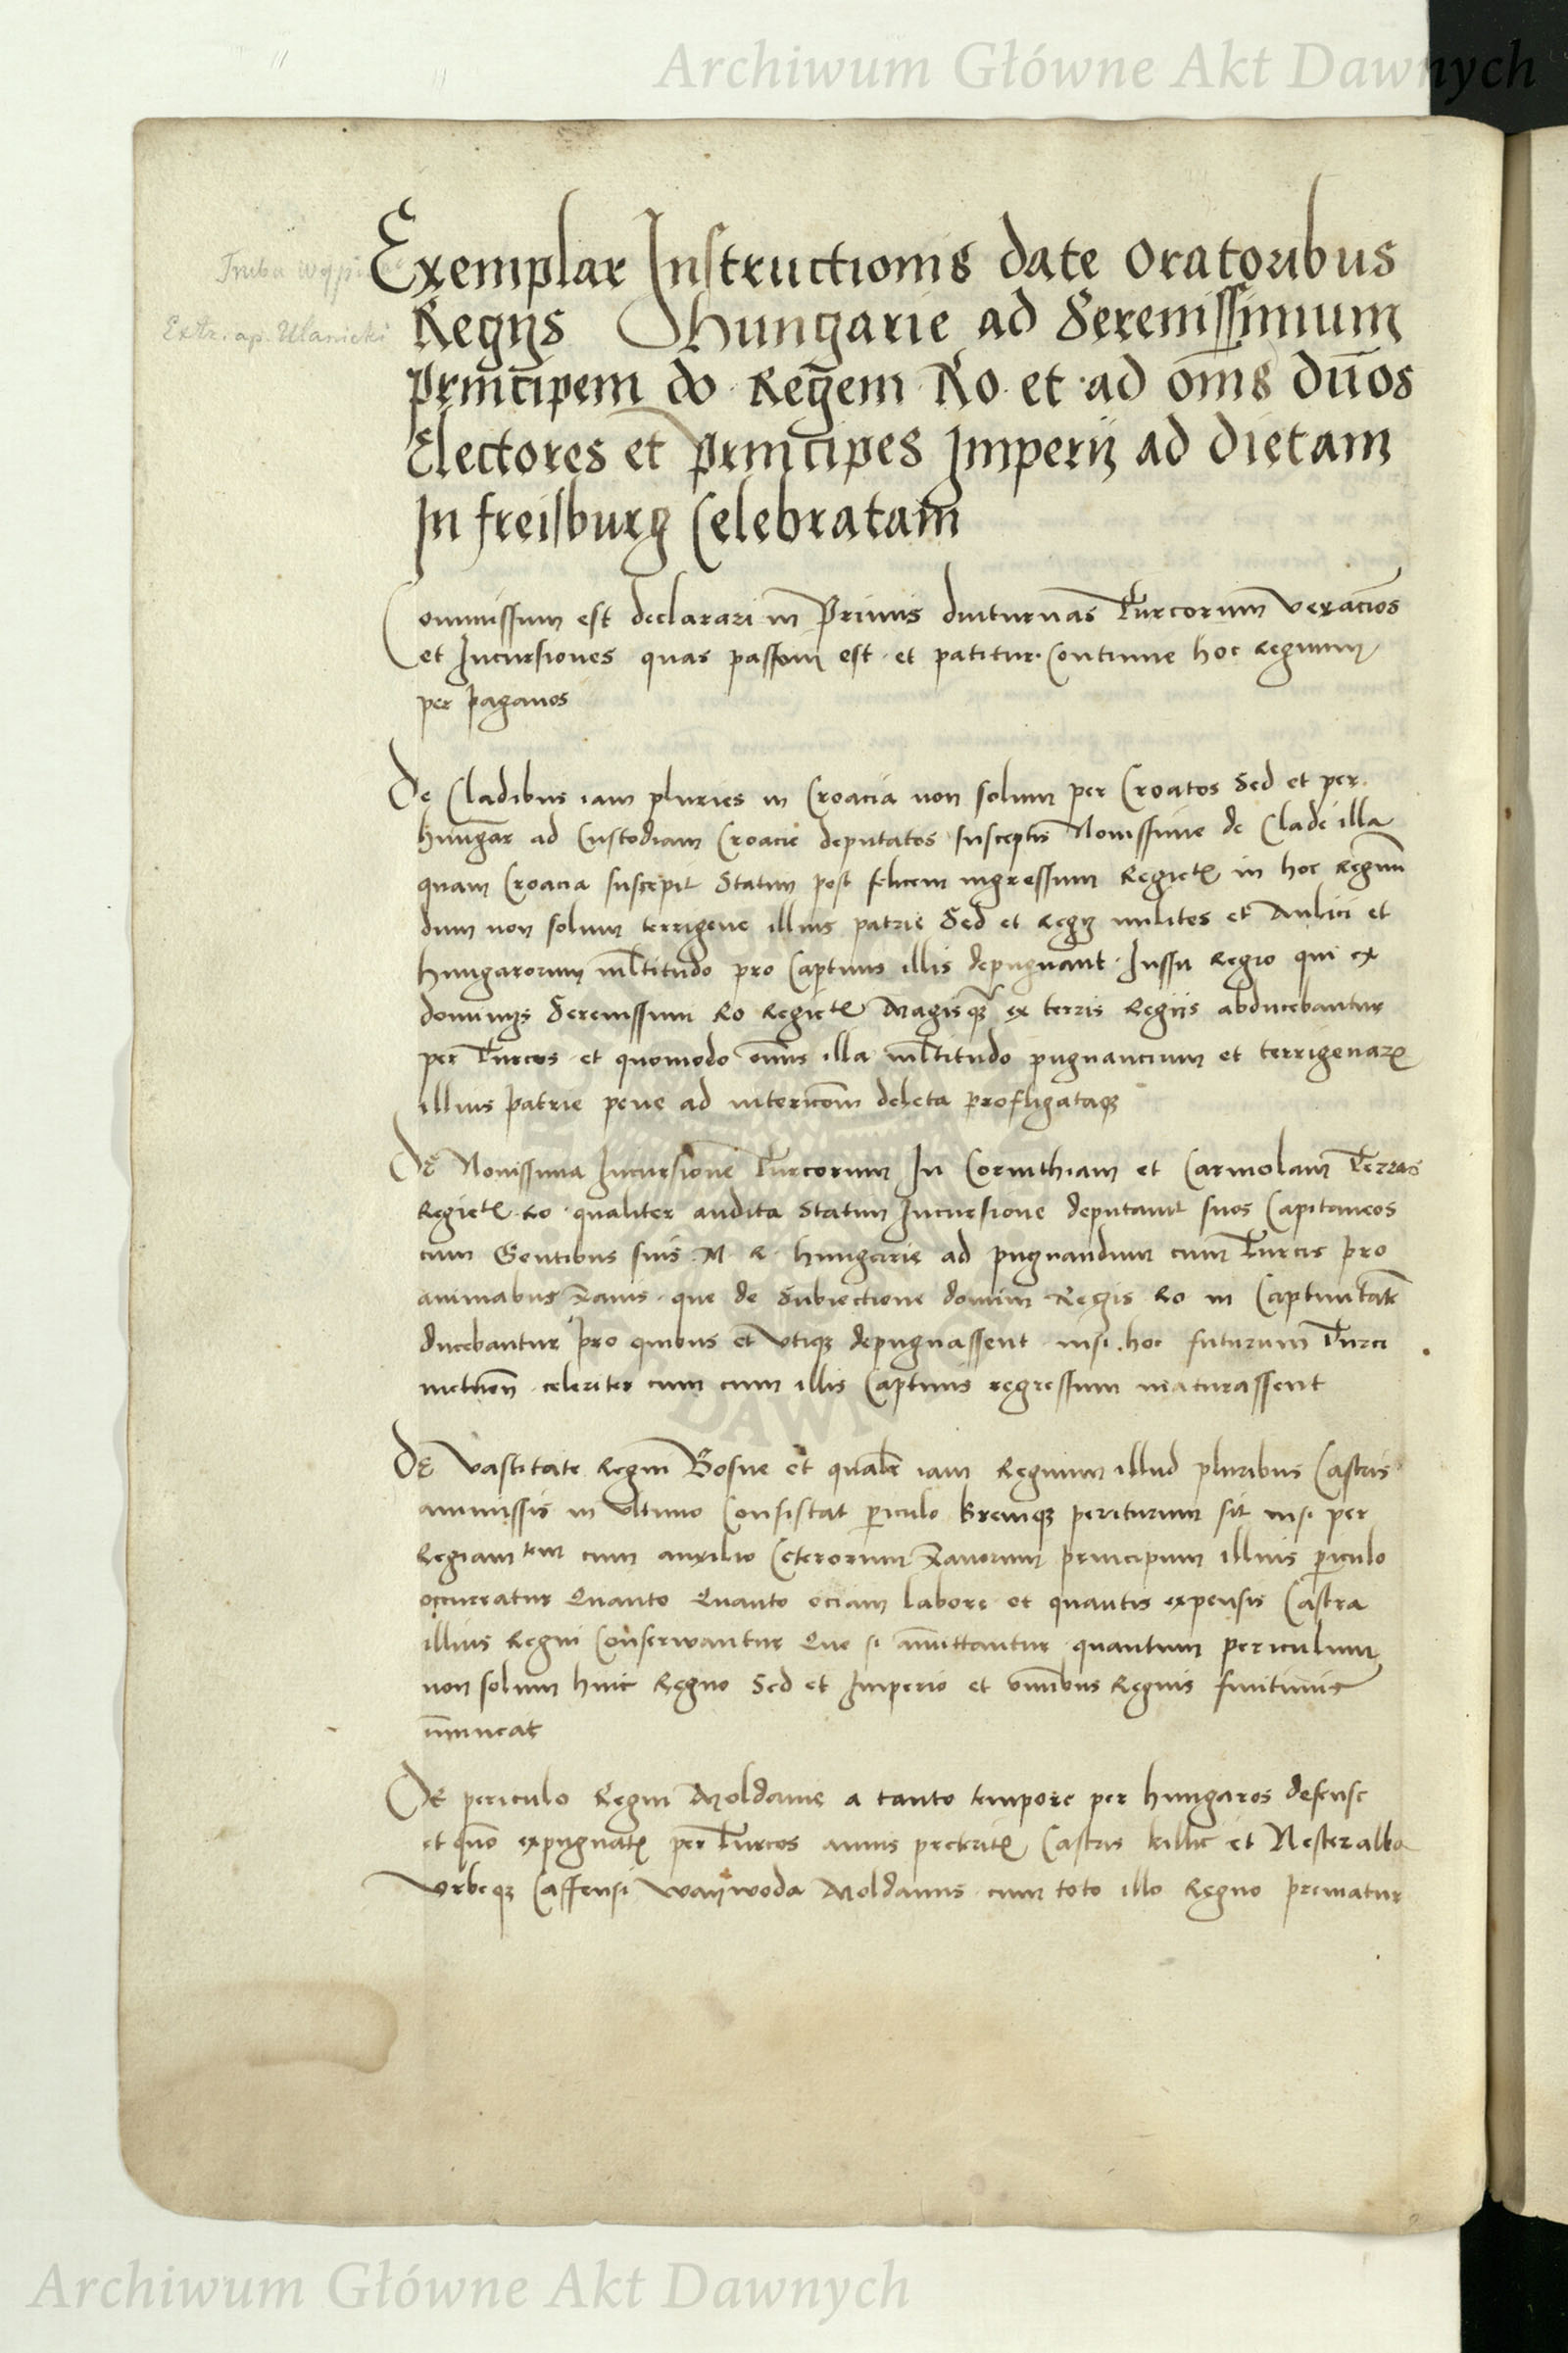 Archiwum Główne Akt Dawnych
Exemplar Instructionis date Oratoribus
Regijs Hungarie ad Serenissimum
Principem do Regem Ro et ad oms dnos
Electores et Principes Imperij ad dietam
In freisburg Celebratam
Extr. ap. Ulanicki
Commissum est declarari in Primis diuturnas Turcorum vexacios
et Incursiones quas passom est et patitur Continue hoc regnum
per paganos
De Cladibus iam pluries in Croacia non solum per Croatos Sed et per
hungar ad Custodiam Croacie deputatos susceptis Nouissime de Clade illa
quam Croacia suscepit Statim post felicem ingressum Regie in hoc Regnum
dum non solum terrigene illius patrie Sed et regij milites et Aulici et
hungarorum mltitudo pro Captiuis illis depugnant Jussu Regio qui ex
dominijs Serenissimi Ro Regie Magisq ex terris Regijs abducebantur
per Turcos et quomodo omis illa mltitudo pugnancium et terrigenar
illius patrie pene ad intericom deleta profligataq
De Nouissima Incursione Turcorum In Corinthiam et Carniolam Terras
Regie Ro qualiter audita Statim Incursione deputauit suos Capitaneos
cum Gentibus suis M R hungarie ad pugnandum cum Turcis pro
animabus xanis que de Subiectione domini Regis Ro in Captiuitate
ducebantur pro quibus et vtiq depugnassent nisi hoc futurum Turci
metuen celeriter cum cum illis Captiuis regressum maturassent
De vastitate Regni Bosne et qualr iam Regnum illud pluribus Castris
ammissis in vltimo Consistat piculo breuiq periturum sit nisi per
Regiam tem cum auxilio Ceterorum xanorum principum illius piculo
occuratur Quanto Quanto eciam labore et quantis expensis Castra
illius Regni Conserwantur Que si amittantur quantum periculum
non solum huic Regno Sed et Imperio et omibus Regnis finitimis
imineat
De periculo Regni Moldauie a tanto tempore per hungaros defense
et quo expugnat per Turcos annis preterit Castris killie et Nesteralba
vrbeq Caffensi waywoda Moldauus cum toto illo Regno prematur
Archiwum Główne Akt Dawnych